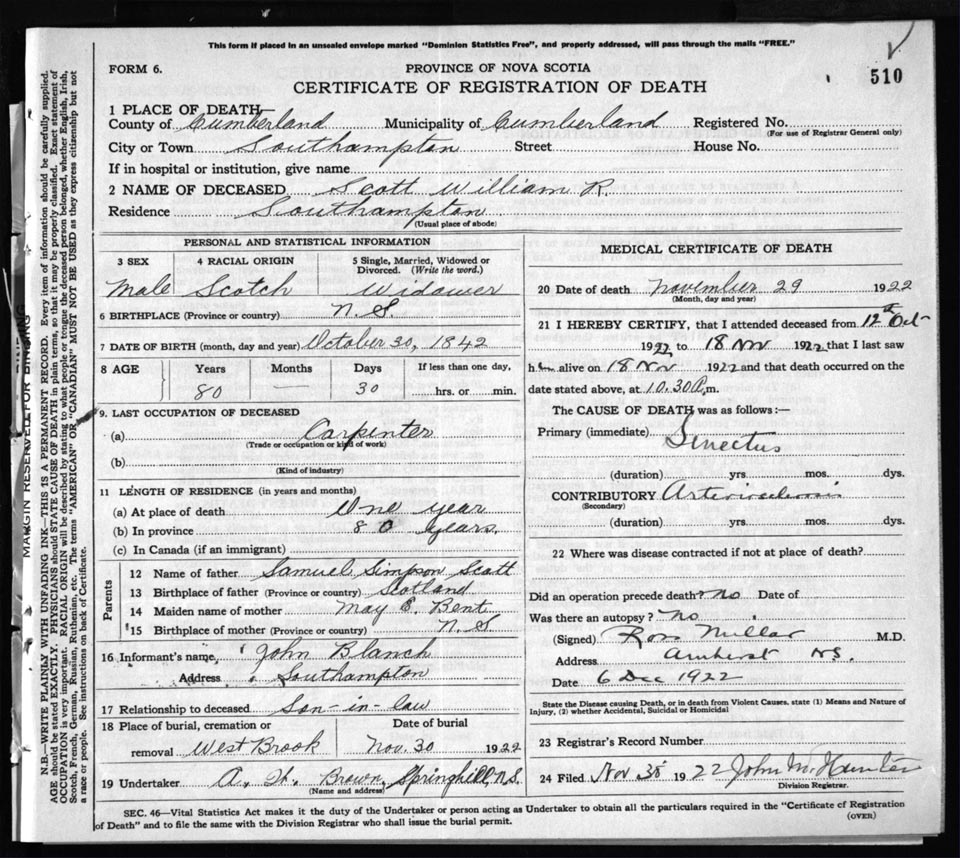 This form if placed in an unsealed envelope marked "Dominion Statistics Free", and properly addressed, will pass through the mails "FREE."
FORM 6.
PROVINCE OF NOVA SCOTIA
510
CERTIFICATE OF REGISTRATION OF DEATH
1 PLACE OF DEATH—
County of Cumberland Municipality of Cumberland Registered No.
(For use of Registrar General only)
City or Town Southampton Street House No.
If in hospital or institution, give name
2 NAME OF DECEASED Scott William R
Residence Southampton
(Usual place of abode)
PERSONAL AND STATISTICAL INFORMATION
3 SEX 4 RACIAL ORIGIN 5 Single, Married, Widowed or Divorced. (Write the word.)
Male Scotch Widower
6 BIRTHPLACE (Province or country) N. S.
7 DATE OF BIRTH (month, day and year) October 30, 1842
8 AGE Years Months Days If less than one day,
80 — 30 hrs. or min.
9. LAST OCCUPATION OF DECEASED
(a) Carpenter
(Trade or occupation or kind of work)
(b)
(Kind of industry)
11 LENGTH OF RESIDENCE (in years and months)
(a) At place of death One year
(b) In province 80 years.
(c) In Canada (if an immigrant)
Parents
12 Name of father Samuel Simpson Scott
13 Birthplace of father (Province or country) Scotland
14 Maiden name of mother May E. Bent
15 Birthplace of mother (Province or country) N. S
16 Informant's name, John Blanch
Address Southampton
17 Relationship to deceased Son-in-law
18 Place of burial, cremation or Date of burial
removal West Brook Nov. 30 1922
19 Undertaker A. H. Brown, Springhill, N.S.
(Name and address)
MEDICAL CERTIFICATE OF DEATH
20 Date of death November 29 1922
(Month, day and year)
21 I HEREBY CERTIFY, that I attended deceased from 12th Oct
1922 to 18 Nov 1922 that I last saw
him alive on 18 Nov 1922 and that death occurred on the
date stated above, at 10.30 P.m.
The CAUSE OF DEATH was as follows:—
Primary (immediate) Senectus
(duration) yrs. mos. dys.
CONTRIBUTORY
(Secondary)
(duration) yrs. mos. dys.
22 Where was disease contracted if not at place of death?
Did an operation precede death? no Date of
Was there an autopsy? no
(Signed) Ross Millar M.D.
Address Amherst NS.
Date 6 Dec 1922
State the Disease causing Death, or in death from Violent Causes, state (1) Means and Nature of Injury, (2) whether Accidental, Suicidal or Homicidal
23 Registrar's Record Number
24 Filed Nov 30 1922 John W. Hunter
Division Registrar.
SEC. 46—Vital Statistics Act makes it the duty of the Undertaker or person acting as Undertaker to obtain all the particulars required in the "Certificate of Registration
of Death" and to file the same with the Division Registrar who shall issue the burial permit.
(OVER)
MARGIN RESERVED FOR BINDING
N.B.—WRITE PLAINLY WITH UNFADING INK—THIS IS A PERMANENT RECORD. Every item of information should be carefully supplied.
AGE should be stated EXACTLY. PHYSICIANS should STATE CAUSE OF DEATH in plain terms, so that it may be properly classified. Exact statement of
OCCUPATION is very important. RACIAL ORIGIN will be described by stating to what people or tongue the deceased person belonged, whether English, Irish,
Scotch, French, German, Russian, Ruthenian, etc. The terms "AMERICAN" OR "CANADIAN" MUST NOT BE USED as they express citizenship but not
a race or people. See instructions on back of Certificate.